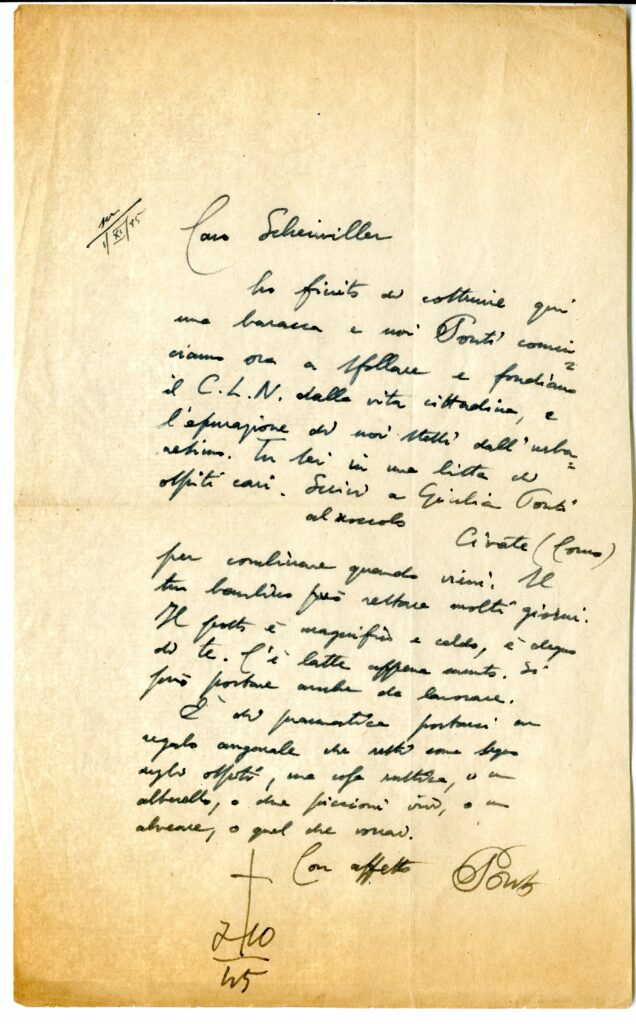 scr.
1/XI/45
Caro Scheiwiller
ho finito di costruire qui
una baracca e noi Ponti comin=
ciamo ora a sfollare e fondiamo
il C.L.N. dalla vita cittadina, e
l'epurazione di noi stessi dall'urba=
nesimo. Tu sei in una lista di
ospiti cari. Scrivi a Giulia Ponti
al zoccolo
Civate (Como)
per combinare quando vieni. Il
tuo bambino può restare molti giorni.
Il posto è magnifico e caldo, è degno
di te. C'è latte appena munto. Si
può portare anche da lavorare.
È di prammatica portarci un
regalo augurale che resti come segno
degli ospiti, una cosa rustica, o un
alberello, o due piccioni vivi, o un
alveare, o quel che vorrai.
Con affetto Ponti
7 10
45